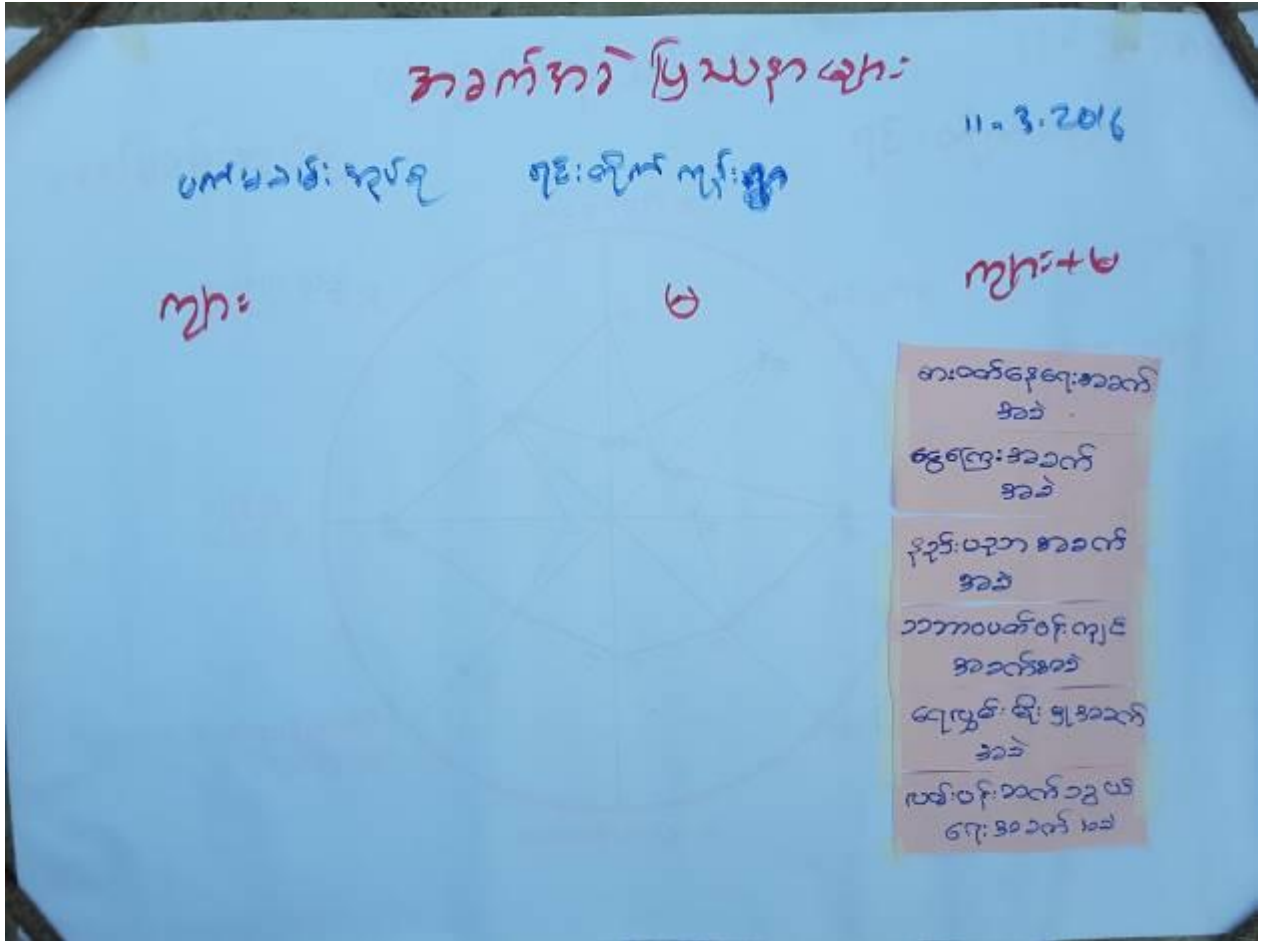 အခက်အခဲ ပြဿနာများ
11.3.2016
ပကာမခမ်း အုပ်စု ရင်းတိုက် ကျန်းရွာ
ကျား
မ
ကျား+မ
စားဝတ်နေရေးအခက်
အခဲ
ငွေကြေးအခက်
အခဲ
နည်းပညာ အခက်
အခဲ
သဘာဝပတ်ဝန်းကျင်
အခက်အခဲ
ရေလွှမ်းမိုးမှုအခက်
အခဲ
လမ်းပန်းဆက်သွယ်
ရေးအခက်အခဲ